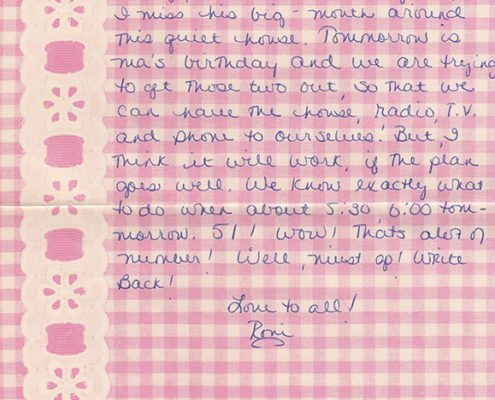 I miss his big-mouth around
this quiet house. Tommorrow is
ma's birthday and we are trying
to get those two out, so that we
can have the house, radio, T.V.
and phone to ourselves! But, I
think it will work, if the plan
goes well. We know exactly what
to do when about 5:30, 6:00 tom-
morrow. 51! Wow! Thats alot of
number! Well, must go! Write
Back!
Love to all!
Roni